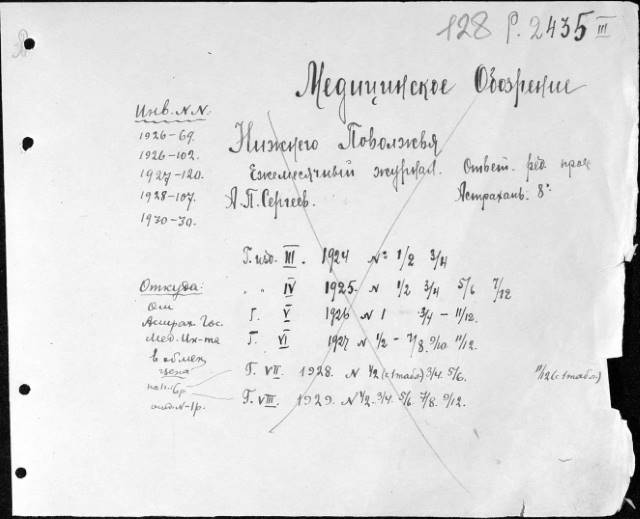 128 р. 2435 III
Медицинское Обозрение
Инв. N.N.
1926-69.
Нижнего Поволжья
1926-102.
Ежемесячный журнал. Ответ. ред. проф.
1927-120.
1928-107. А.П. Сергеев. Астрахань. 8°
1930-30.
Г. изд. III. 1924 № 1/2 3/4
Откуда: " " IV 1925. N 1/2 3/4 5/6 7/12
От
Г. V 1926 N 1 3/4 - 11/12.
Астрах Гос.
Мед. Ин-та Г. VI 1927 N 1/2 - 7/8. 9/10 11/12.
в обмен
цена Г. VII. 1928. N 1/2 (с 1 табл.) 3/4. 5/6. 11/12 (с 1 табл.)
Г. VIII. 1929. N 1/2. 3/4. 5/6. 7/8. 9/12.
отд. N-1р.